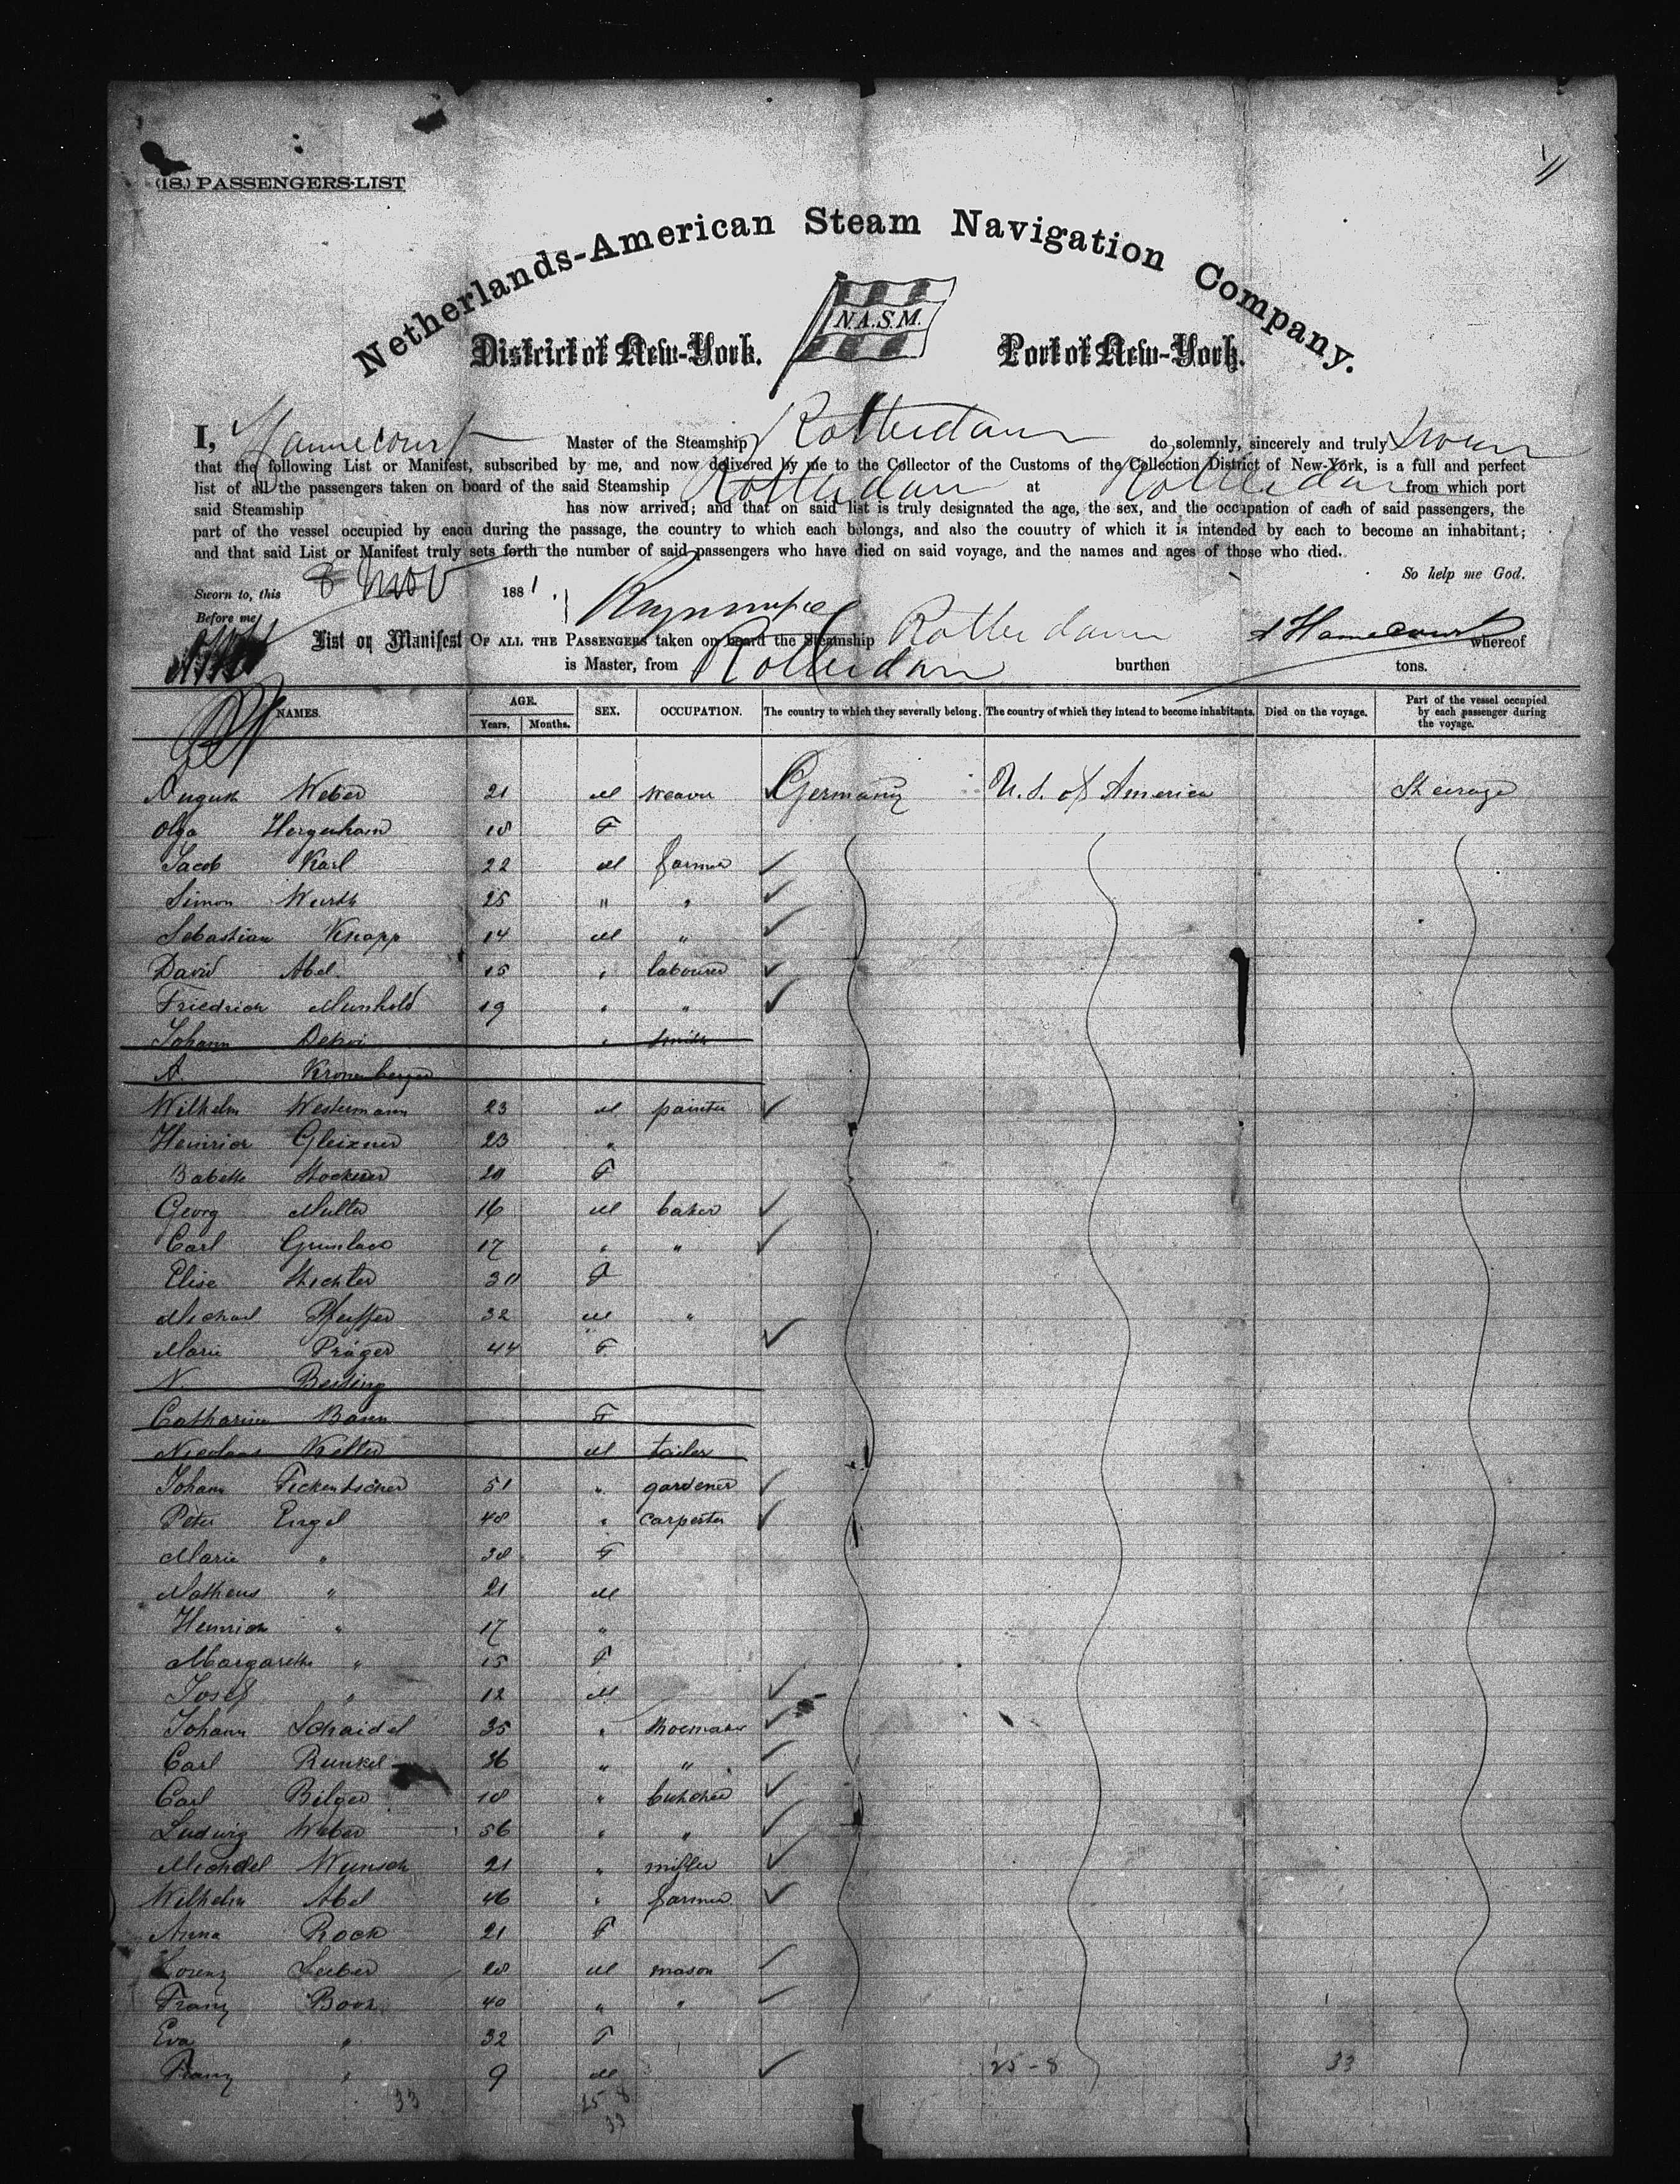 (18.) PASSENGERS-LIST
11
Netherlands-American Steam Navigation Company.
N.A.S.M.
District of New-York. Port of New-York.
I, Hamecourt Master of the Steamship Rotterdam do solemnly, sincerely and truly swear
that the following List or Manifest, subscribed by me, and now delivered by me to the Collector of the Customs of the Collection District of New-York, is a full and perfect
list of all the passengers taken on board of the said Steamship Rotterdam at Rotterdam from which port
said Steamship has now arrived; and that on said list is truly designated the age, the sex, and the occupation of each of said passengers, the
part of the vessel occupied by each during the passage, the country to which each belongs, and also the country of which it is intended by each to become an inhabitant;
and that said List or Manifest truly sets forth the number of said passengers who have died on said voyage, and the names and ages of those who died.
So help me God.
Sworn to, this 8 Nov 1881.
Before me
List or Manifest OF ALL THE PASSENGERS taken on board the Steamship Rotterdam Hamecourt whereof
is Master, from Rotterdam burthen tons.
NAMES. AGE. Years. Months. SEX. OCCUPATION. The country to which they severally belong. The country of which they intend to become inhabitants. Died on the voyage. Part of the vessel occupied by each passenger during the voyage.
August Weber 21 M weaver Germany U.S. of America Steerage
Olga Hergenhain 18 F
Jacob Karl 22 M farmer
Simon Wurth 25 " "
Sebastian Knapp 14 M "
David Abel 15 " labourer
Friedrich Munhold 19 " "
Johann " smith
A. Kronenberger
Wilhelm Westermann 23 M painter
Heinrich Gleixner 23 "
Babette Stockerer 20 F
Georg Muller 16 M baker
Carl Grunlach 17 " "
Elise Stechter 30 F
Michael Pfeiffer 32 M "
Marie Präger 44 F
N. Besting
Catharina Baun F
Nicolaas Keller M tailor
Johann Fickentscher 51 " gardener
Peter Engel 48 " carpenter
Marie " 38 F
Matheus " 21 M
Heinrich " 17 "
Margareth " 15 F
Josef " 12 M
Johann Schaidel 35 " shoemaker
Carl Runkel 36 " "
Carl Bilger 18 " butcher
Ludwig Weber 56 " "
Michael Wunsch 21 " miller
Wilhelm Abel 46 " farmer
Anna Rock 21 F
Lorenz Leiber 28 M mason
Franz Book 40 " "
Eva " 32 F
Franz " 9 M 25-8 33
33 25 8
33